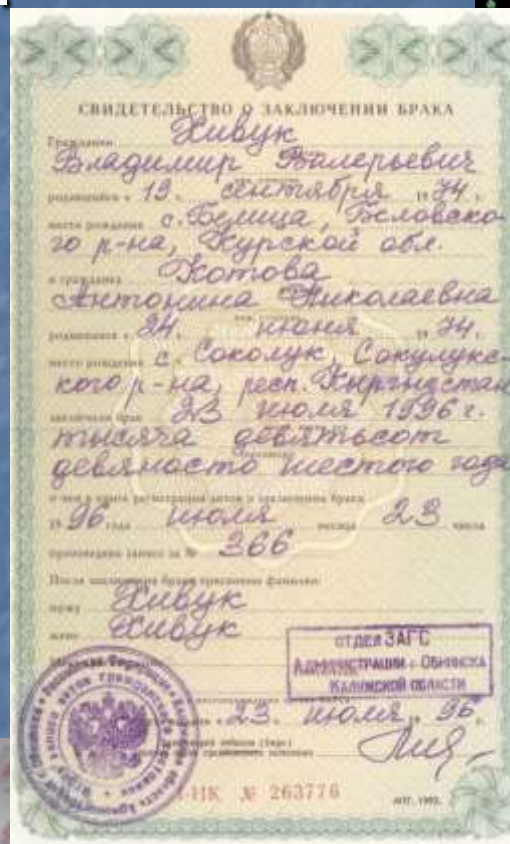 СВИДЕТЕЛЬСТВО О ЗАКЛЮЧЕНИИ БРАКА
Гражданин Живук
Владимир Валерьевич
родившийся « 19 » сентября 1974 г.
место рождения с. Белица, Беловско-
го р-на, Курской обл.
и гражданка Котова
Антонина Николаевна
родившаяся « 24 » июня 1974 г.
место рождения с. Соколук, Сокулукс-
кого р-на, респ. Кыргызстан
заключили брак 23 июля 1996 г.
тысяча девятьсот
девяносто шестого года
о чем в книге регистрации актов о заключении брака
19 96 года июля месяца 23 числа
произведена запись за № 366
После заключения брака присвоены фамилии:
мужу Живук
жене Живук
ОТДЕЛ ЗАГС
АДМИНИСТРАЦИИ г. ОБНИНСКА
КАЛУЖСКОЙ ОБЛАСТИ
« 23 » июля 1996
-НК № 263776